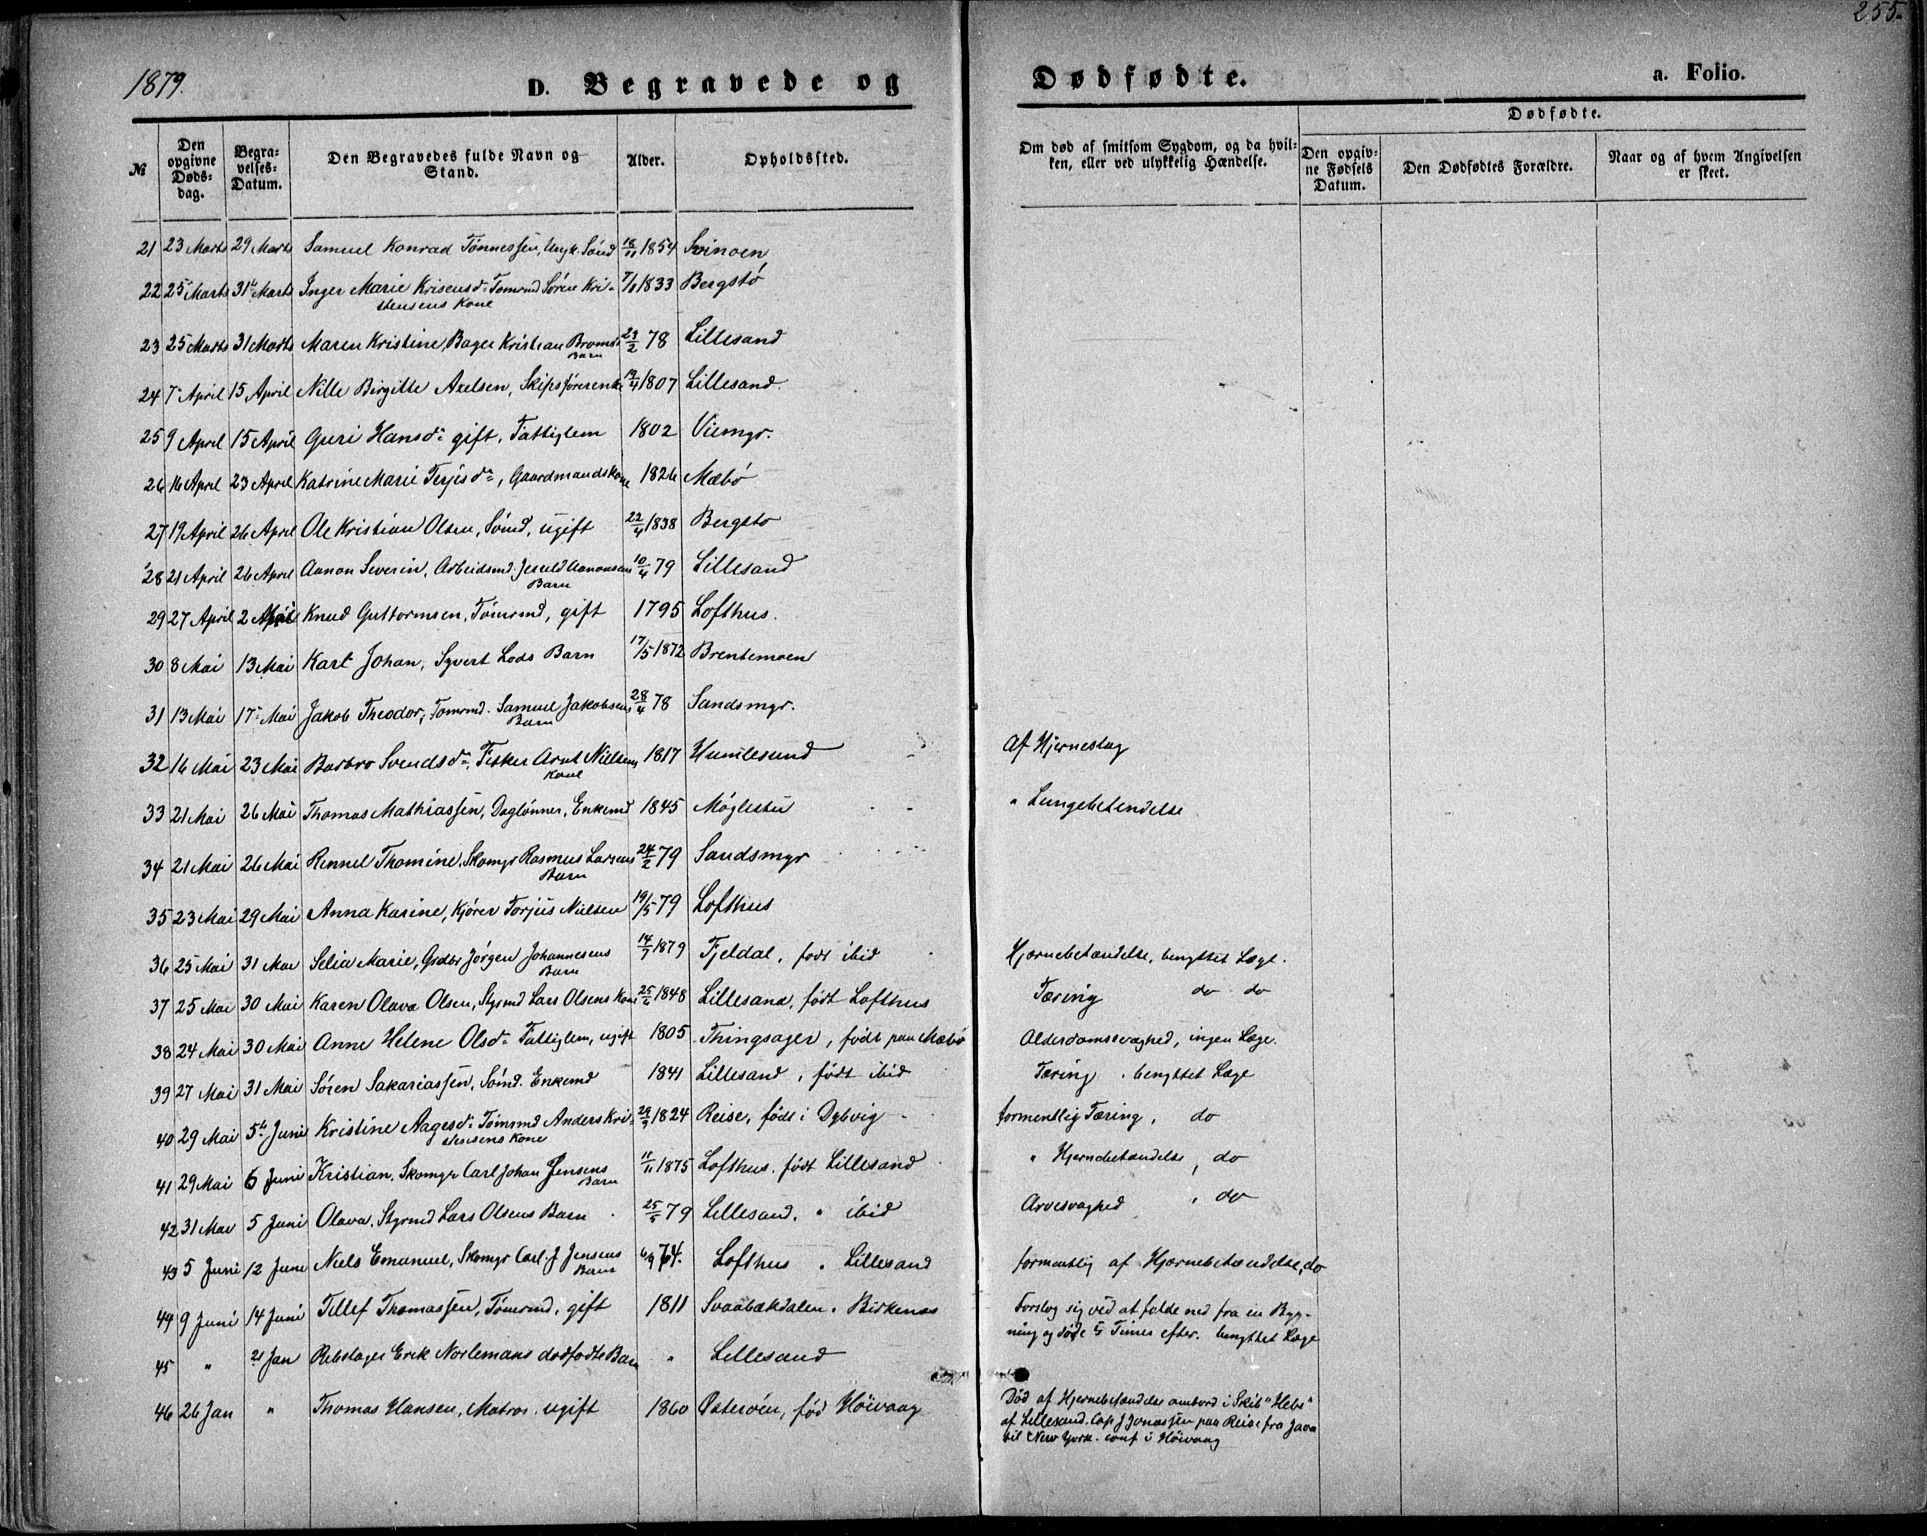 255.
1879.
D. Begravede og Dødfødte. a. Folio.
№
Den opgivne Døds-dag.
Begra-velses-Datum.
Den Begravedes fulde Navn og Stand.
Alder.
Opholdssted.
Om død af smitsom Sygdom, og da hvil-ken, eller ved ulykkelig Hændelse.
Dødfødte.
Den opgiv-ne Fødsels Datum.
Den Dødfødtes Forældre.
Naar og af hvem Angivelsen er skeet.
21 23 Marts 29 Marts Samuel Konrad Tønnessen, Ungk. Sömd 18/11 1854 Svinoen
22 25 Marts 31 Marts Inger Marie Krisensd: Tømrmd Sören Kri- 1833 Bergstö
stensens Kone
23 25 Marts 31 Marts Maren Kristine, Bager Kristian 23/2 78 Lillesand
Barn
24 7 April 15 April Nille Birgitte Axelsen, Skipsførerenke 1807 Lillesand.
25 9 April 15 April Guri Hansd: gift, Fattiglem 1802 Viemgr.
26 16 April 23 April Katrine Marie Terjesd:, Gaardmandskone 1826 Mæbö
27 19 April 26 April Ole Kristian Olsen, Sömd, ugift 22/4 1838 Bergstø
28 21 April 26 April Aanon Severin, Arbeidsmd. Aanonsens 10/4 79 Lillesand
Barn
29 27 April 2 Mai Knud Guttormsen, Tömrmd, gift 1795 Lofthus.
30 8 Mai 13 Mai Karl Johan, Syvert Lods Barn 17/5 1872 Brentemoen
31 13 Mai 17 Mai Jakob Theodor, Tømrmd. Samuel Jakobsens 28/4 78 Sandsmyr.
Barn
32 16 Mai 23 Mai Barbro Svendsd:, Fisker Arnt Nielsens 1817 Humlesund Af Hjerneslag
Kone
33 21 Mai 26 Mai Thomas Mathiassen, Daglönner, Enkemd 1845 Møglestu " Lungebetendelse
34 21 Mai 26 Mai Rennel Thomine, Skomgr Rasmus Larsens 24/2 79 Sandsmyr
Barn
35 23 Mai 29 Mai Anna Karine, Kjører Torjus Nielsen 19/5 79 Lofthus
36 25 Mai 31 Mai Selia Marie, Grdbr Jörgen Johannesens 1879 Fjeldal, født ibid Hjernebetændelse, benyttet Læge.
Barn
37 25 Mai 30 Mai Karen Olava Olsen, Styrmd Lars Olsens Kone 1848 Lillesand, født Lofthus Tæring do do
38 24 Mai 30 Mai Anne Helene Olsd: Fattiglem, ugift 1805 Thingsager, født paa Mæbö Alderdomssvaghed, ingen Læge.
39 27 Mai 31 Mai Sören Sakariassen, Sömd. Enkemd 1841 Lillesand, født ibid Tæring . benyttet Læge
40 29 Mai 5 Juni Kristine Aagesd: Tömrmd Anders Kri- 1824 Reise, født i Dybvig formentlig Tæring, do
stensens Kone
41 29 Mai 6 Juni Kristian, Skomgr Carl Johan Jensens 11/11 1875 Lofthus, født Lillesand " Hjernebetændelse, do
Barn
42 31 Mai 5 Juni Olava, Styrmd Lars Olsens Barn 25/5 79 Lillesand, " ibid Arvesvaghed , do
43 5 Juni 12 Juni Niels Emanuel, Skomgr Carl J Jensens 6/9 74. Lofthus " Lillesand formentlig af Hjernebetændelse, do
Barn
44 9 Juni 14 Juni Tellef Thomassen, Tömrmd, gift 1811 Svaabækdalen " Birkenæs Forslog sig ved at falde ned fra en Byg-
ning og døde 5 Timer efter. benyttet Læge
45 " 21 Jan Rebslager Erik Norlemans dødfødte Barn " Lillesand
46 26 Jan " Thomas Hansen, Matros, ugift 1860 Østeröen, fød Höivaag Död af Hjernebetændelse ombord i Skib "Hebe"
af Lillesand. Cap J Jonassen paa Reise fra Java
til New York. conf i Höivaag